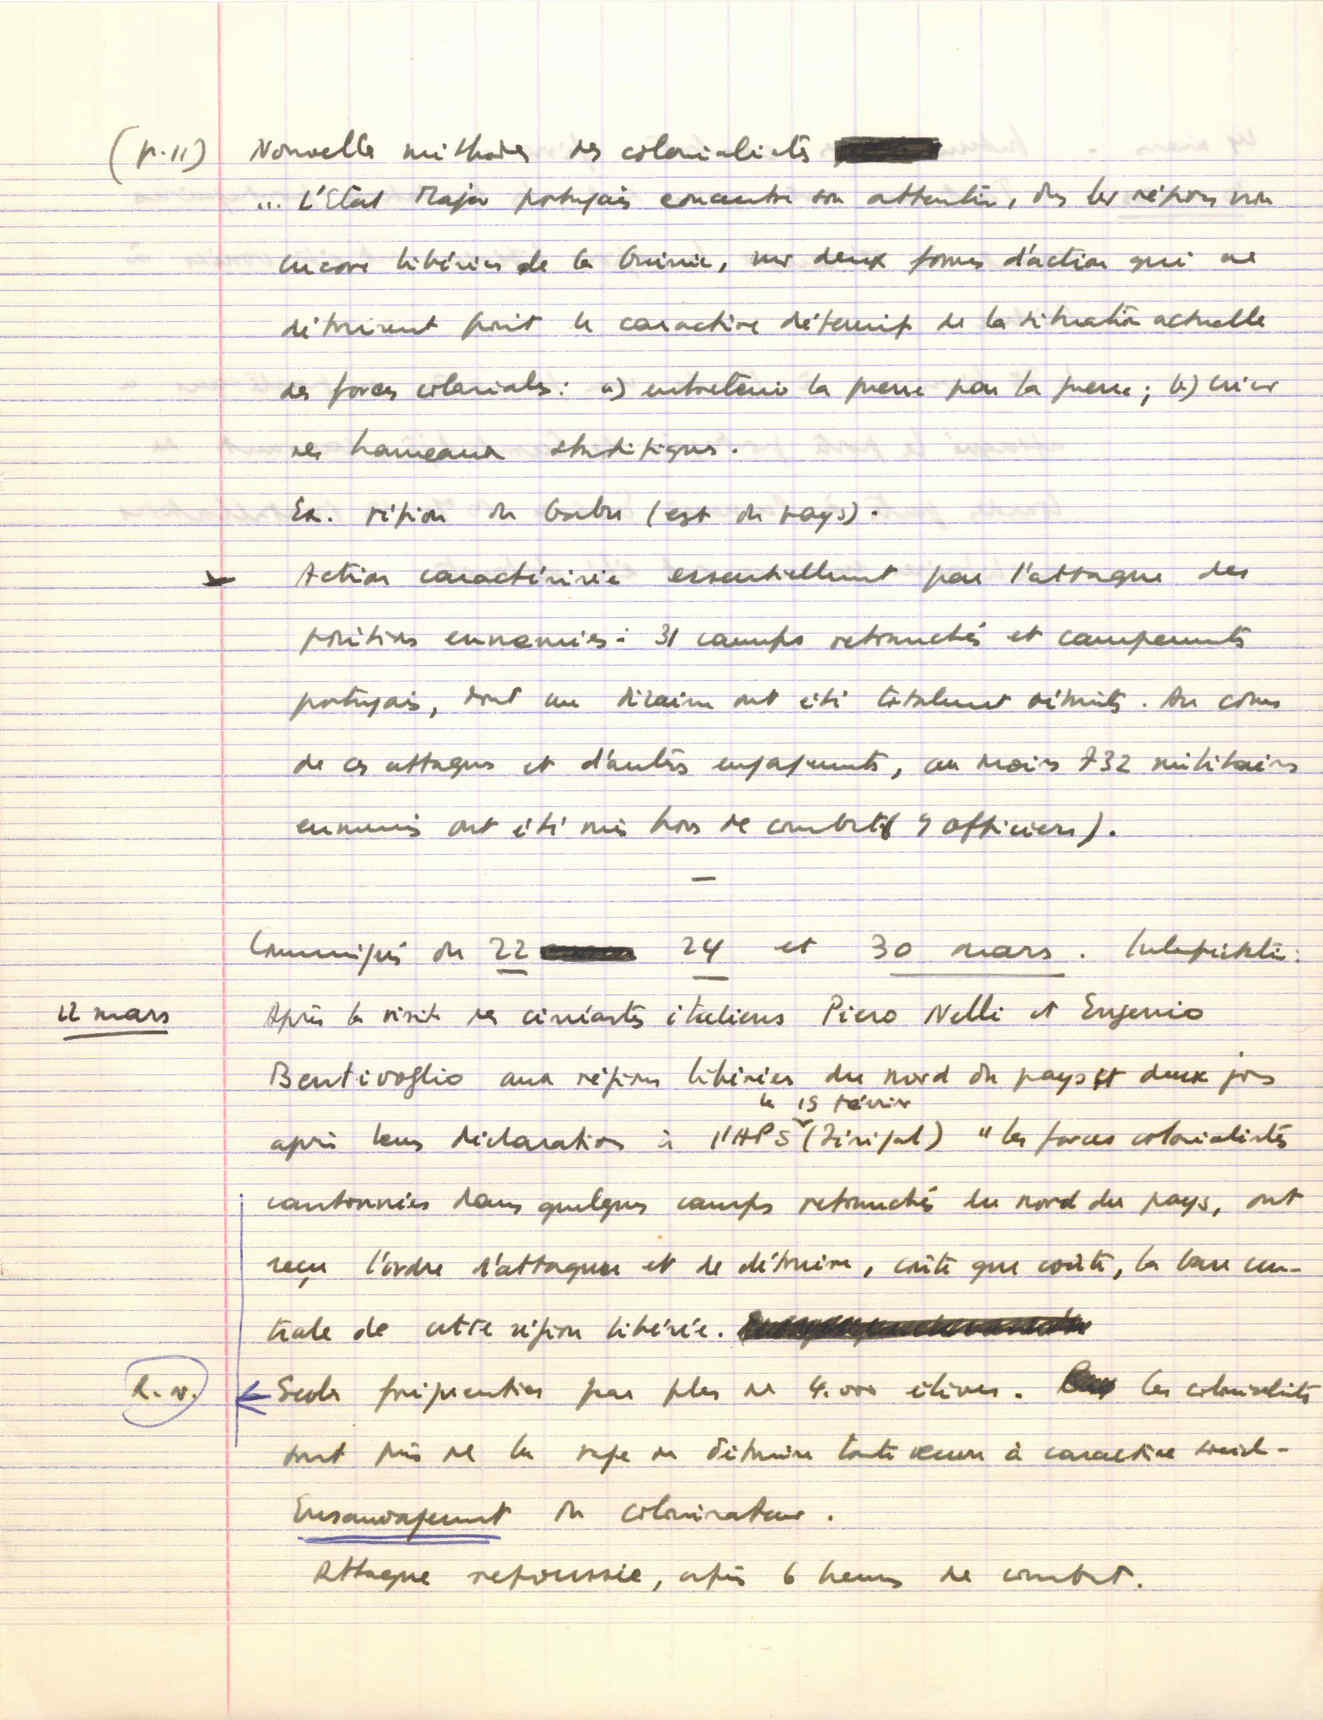 (p.11) Nouvelles méthodes des colonialistes
... L'Etat Major portugais concentre son attention, ds les régions non
encore libérées de la Guinée, sur deux formes d'action qui ne
détruisent point le caractère défensif de la situation actuelle
des forces coloniales: a) entretenir la guerre par la guerre; b) créer
des hameaux stratégiques.
Ex. région du Gabu (est du pays).
Action caractérisée essentiellement par l'attaque des
positions ennemies: 31 camps retranchés et campements
portugais, dont une dizaine ont été totalement détruits. Au cours
de ces attaques et d'autres engagements, au moins 732 militaires
ennemis ont été mis hors de combat (9 officiers).
—
Communiqués du 22 24 et 30 mars.
22 mars Après la visite des cinéastes italiens Piero Nelli et Eugenio
Bentivoglio aux régions libérées du nord du pays et deux jrs
le 15 février
après leurs déclarations à l'APS (Zinigal) "les forces colonialistes
cantonnées dans quelques camps retranchés du nord du pays, ont
reçu l'ordre d'attaquer et de détruire, coûte que coûte, la base cen-
trale de cette région libérée.
R.v. Ecoles fréquentées par plus de 4.000 élèves. Les colonialistes
sont pris de la rage de détruire toute oeuvre à caractère social-
Ensauvagement du colonisateur.
Attaque repoussée, après 6 heures de combat.